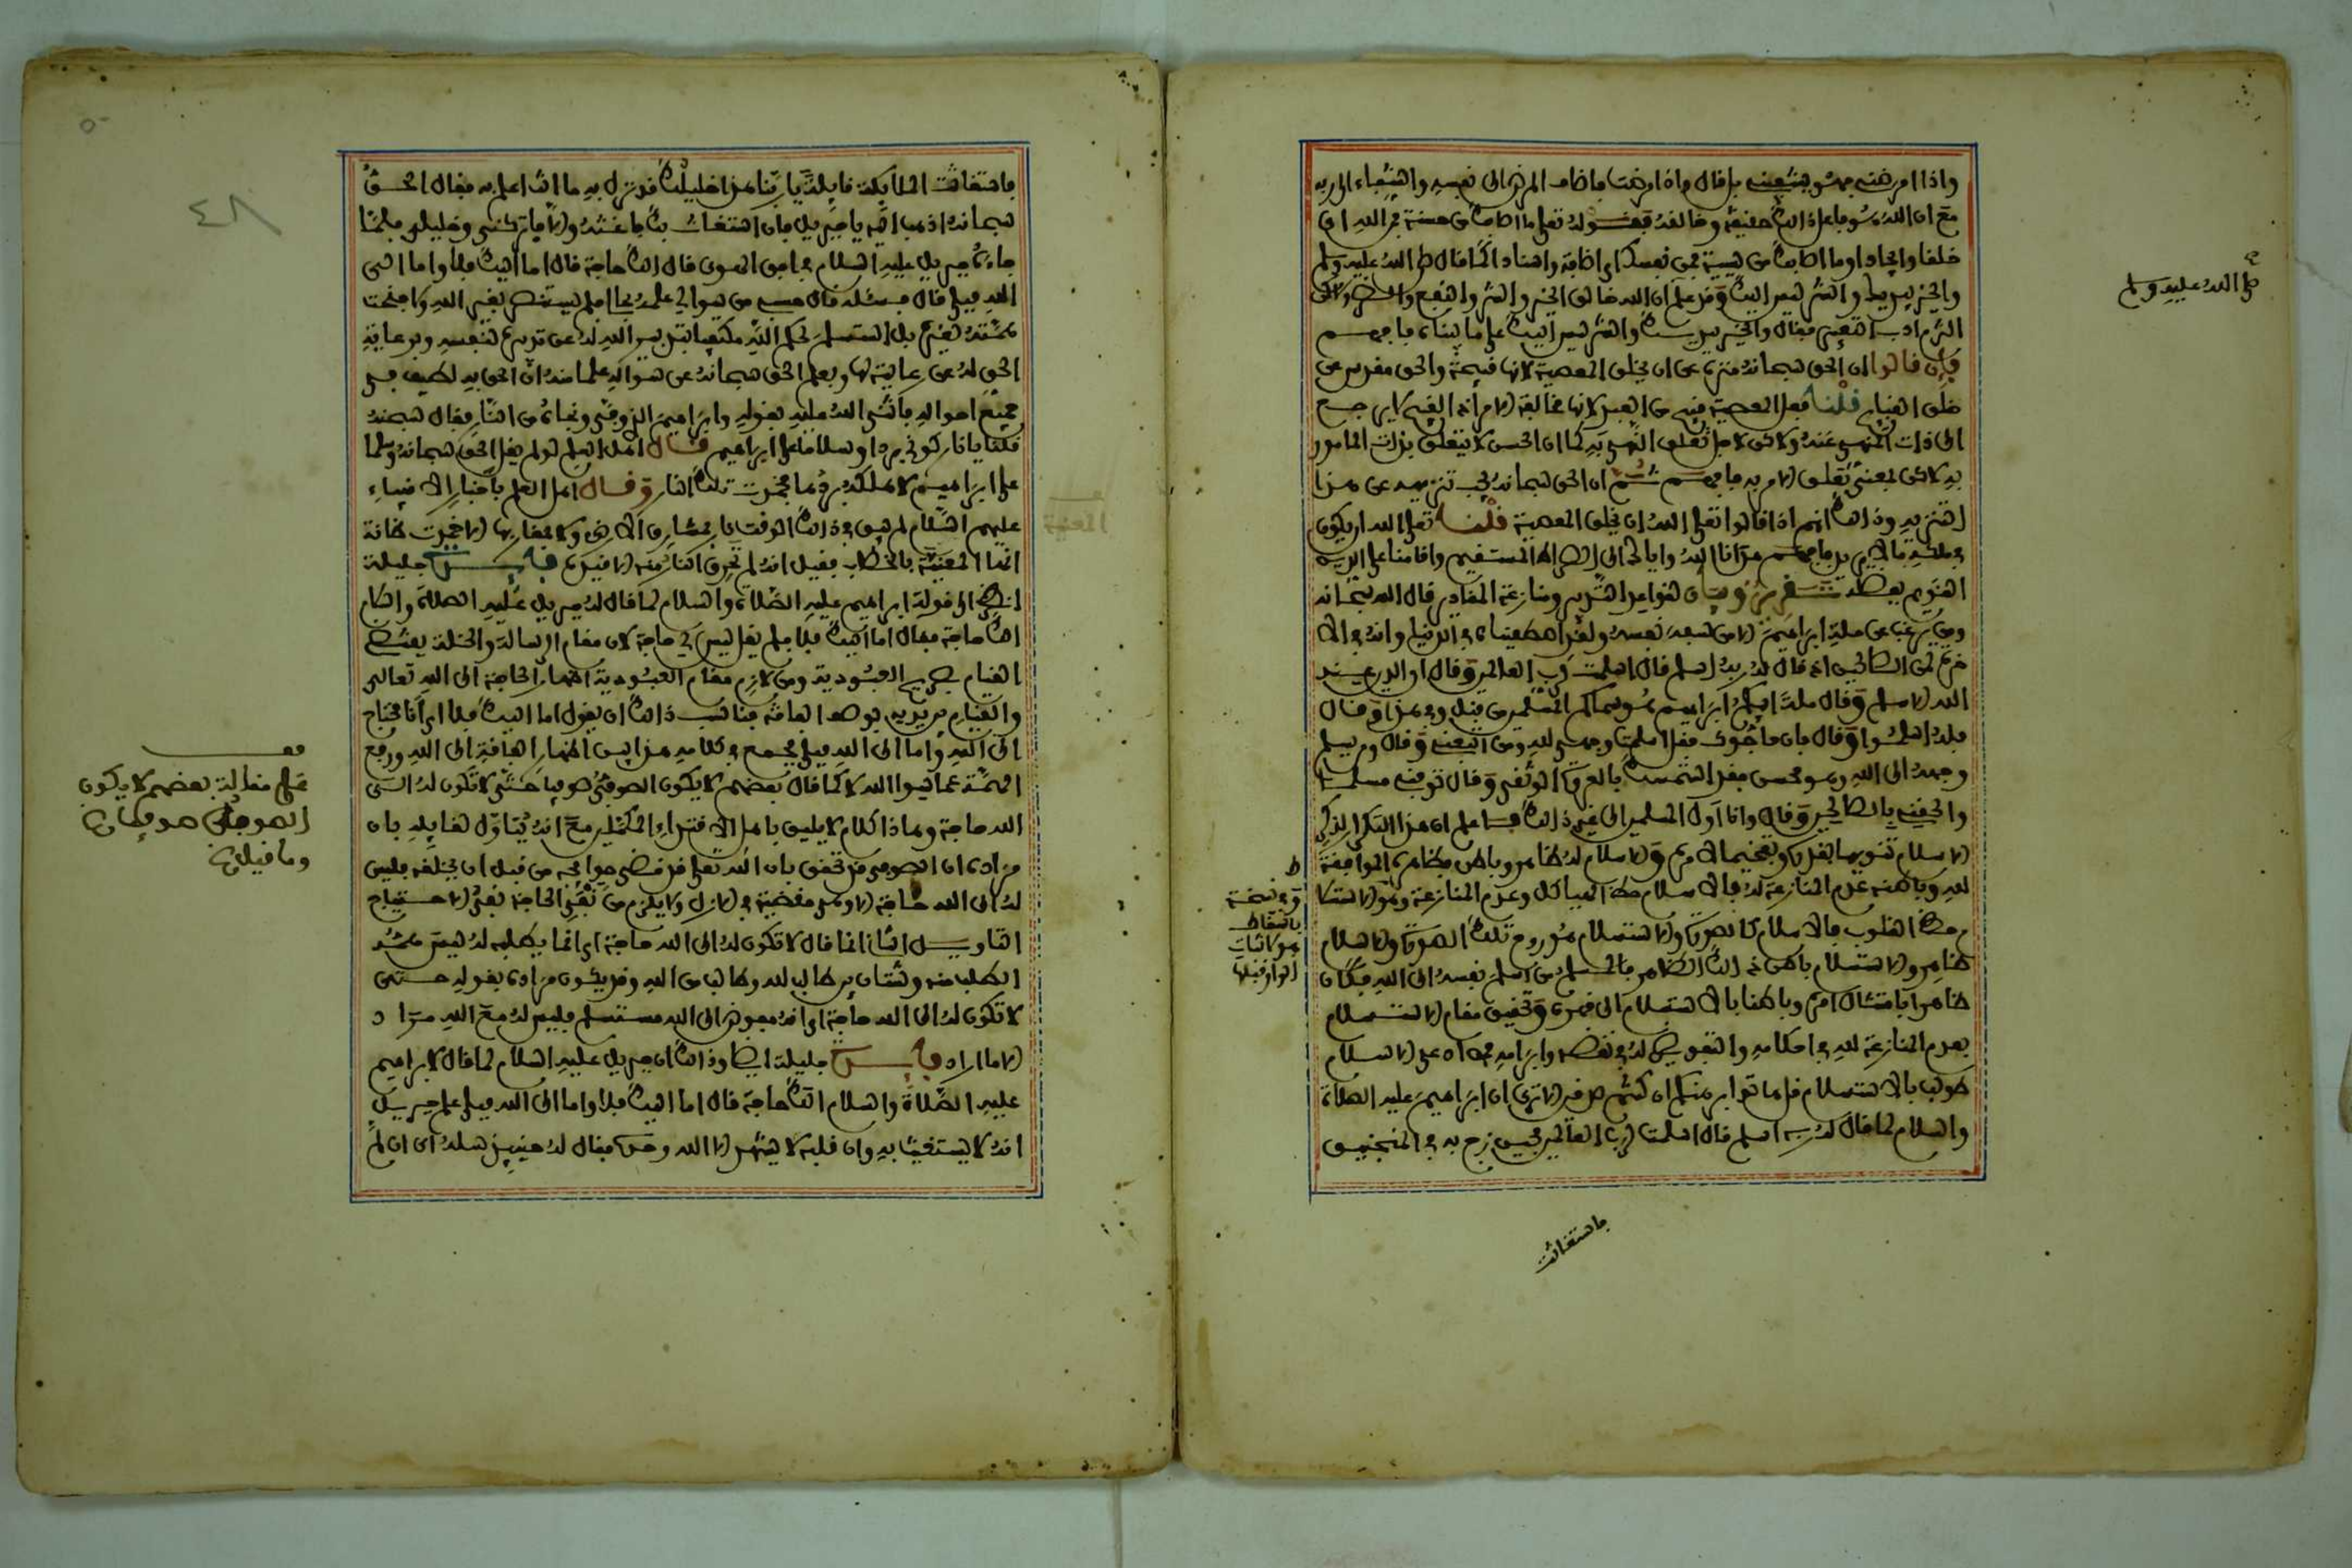 واذا امرضني فهو يشفيني بل قال واذا مرضت فاضاف المرض الى نفسه والشفاء الى ربه
مع ان الله هو فاعل ذلك حقيقة وخالقه فقوله تعلى ما اصابك من حسنة فمن الله اى
خلقا وايجادا وما اصابك من سيئة فمن نفسك اى اضافة واسنادا كما قال صلى الله عليه وسلم
والخير بيديك والشر ليس اليك وقد علم ان الله خالق الخير والشر والنفع والضر ولكن
التزم ادب التعبير فقال والخير بيديك والشر ليس اليك على ما بيناه فافهم
فإن قالوا ان الحق سبحانه منزه عن ان يخلق المعصية لانها قبيحة والحق مقدس عن
خلق القبايح قلنا فعل المعصية قبيح من العبد لانها مخالفة الامر اذ القبح لا يرجع
الى ذات المنهي عنه ولاكن لاجل تعلق النهي به كما ان الحسن لا يتعلق بذات المامور
به لاكن بمعنى تعلق الامر به فافهم ثم ان الحق سبحانه يجب تنزيهه عن هذا
التنزيه وذلك انهم اذا قالوا تعلى الله ان يخلق المعصية قلنا تعلى الله ان يكون
في ملكه ما لا يريد فافهم هدانا الله واياك الى الصراط المستقيم واقامنا على الدين
القويم بفضله تقرير وبيان قواعد التدبير ومنازعة المقادير قال الله سبحانه
ومن يرغب عن ملة ابراهيم الا من سفه نفسه ولقد اصطفيناه في الدنيا وانه في الا
خرة لمن الصالحين اذ قال له ربه اسلم قال اسلمت لرب العالمين وقال ان الدين عند
الله الاسلام وقال ملة ابيكم ابراهيم هو سماكم المسلمين من قبل وفي هذا وقال
فله اسلموا وقال فان حاجوك فقل اسلمت وجهي لله ومن اتبعني وقال ومن يسلم
وجهه الى الله وهو محسن فقد استمسك بالعروة الوثقى وقال توفني مسلما
والحقني بالصالحين وقال وانا اول المسلمين الى غير ذلك فاعلم ان هذا التكرار لذكر
الاسلام تنويها بقدره وتفخيما لامره والاسلام له ظاهر وباطن فظاهره الموافقة
لله وباطنه عدم المنازعة له فالاسلام حظ الهياكل وعدم المنازعة وهو الاستسلا
م حظ القلوب فالاسلام كالصورة والاستسلام هو روح تلك الصورة والاسلام
ظاهر والاستسلام باطن ذلك الظاهر فالمسلم من اسلم نفسه الى الله فكان
ظاهرا بامتثال امره وباطنا بالاستسلام الى قهره وتحقيق مقام الاستسلام
بعدم المنازعة لله في احكامه والتفويض له في نقضه وابرامه فمن ادعى الاسلام
طولب بالاستسلام قل هاتوا برهنكم ان كنتم صدقين الا ترى ان ابراهيم عليه الصلاة
والسلام لما قال له ربه اسلم قال اسلمت لرب العالمين فحين زج به في المنجنيق
صلى الله عليه وسلم
وفي نسخة
باسقاط
فاستغاثت
فاستغاثت الملايكة قايلة يا ربنا هذا خليلك قد نزل به ما انت اعلم به فقال الحق
سبحانه اذهب اليه يا جبريل فان استغاث بك فاغثه والا فاتركني وخليلي فلما
جاءه جبريل عليه السلام في افق الهوى قال الك حاجة قال اما اليك فلا واما الى
الله فبلى قال فسئله قال حسبي من سوالي علمه بحالي فلم يستنصر بغير الله ولا جنحت
همته لغيره بل استسلم لحكم الله مكتفيا بتدبير الله له عن تدبيره لنفسه وبرعاية
الحق له عن رعايته لها وبعلم الحق سبحانه عن سواله علما منه ان الحق به لطيف في
جميع احواله فاثنى الله عليه بقوله وابراهيم الذي وفى ونجاه من النار فقال سبحنه
قلنا يا نار كوني بردا وسلاما على ابراهيم قال اهل العلم لو لم يقل الحق سبحانه وسلما
على ابراهيم لاهلكه بردها فخمدت تلك النار وقال اهل العلم باخبار الانبياء
عليهم السلام لم يبق في ذلك الوقت نار بمشارق الارض ولا مغاربها الا خمدت ظانة
انها المعنية بالخطاب فقيل انه لم تحرق النار منه الا قيده فايدة جليلة
انظر الى قول ابراهيم عليه الصلاة والسلام لما قال له جبريل عليه الصلاة والسلام
الك حاجة فقال اما اليك فلا فلم يقل ليس لي حاجة لان مقام الرسالة والخلة يقتضي
القيام بصريح العبودية ومن لازم مقام العبودية اظهار الحاجة الى الله تعالى
والقيام بين يديه بوصف الفاقة فناسب ذلك ان يقول اما اليك فلا اى انا محتاج
الى الله واما الى الله فبلى فجمع في كلامه هذا بين اظهار الفاقة الى الله ورفع
الهمة عما سوا الله لا كما قال بعضهم لا يكون الصوفي صوفيا حتى لا تكون له الى
الله حاجة وهاذا كلام لا يليق باهل الاقتداء المكملين مع انه يتاول لقايله بان
مراده ان الصوفي قد تحقق بان الله تعلى قد قضى حوايجه من قبل ان يخلقه فليس
له الى الله حاجة الا وهي مقضية في الازل ولا يلزم من نفي الحاجة نفي الاحتياج
التاويل الثاني انما قال لا تكون له الى الله حاجة اى انما يطلبه له ليس همته
الطلب منه وشتان بين طالب لله وطالب من الله وقد يكون مراده بقوله حتى
لا تكون له الى الله حاجة اى انه مفوض الى الله مستسلم فليس له مع الله مراد
الا ما اراد فايدة جليلة ايضا وذلك ان جبريل عليه السلام لما قال لابراهيم
عليه الصلاة والسلام الك حاجة قال اما اليك فلا واما الى الله فبلى علم جبريل
انه لا يستغيث به وان قلبه لا يشهد الا الله وحده فقال له حينيذ سله اى ان لم
٤٨
قف
على مقالة بعضهم لا يكون
الصوفي صوفيا
وما قيل في